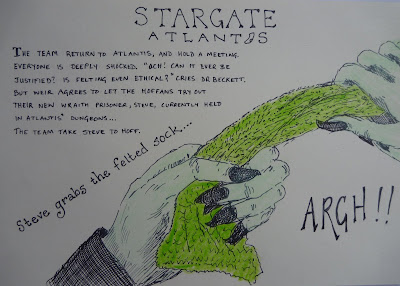 STARGATE
ATLANTIS
THE TEAM RETURN TO ATLANTIS, AND HOLD A MEETING.
EVERYONE IS DEEPLY SHOCKED. "OCH! CAN IT EVER BE
JUSTIFIED? IS FELTING EVEN ETHICAL?" CRIES DR BECKETT.
BUT WEIR AGREES TO LET THE HOFFANS TRY OUT
THEIR NEW WRAITH PRISONER, STEVE, CURRENTLY HELD
IN ATLANTIS' DUNGEONS...
THE TEAM TAKE STEVE TO HOFF.
Steve grabs the felted sock....
ARGH!!